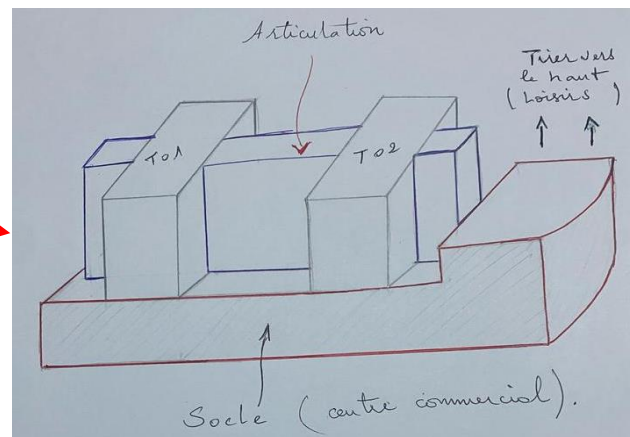 Articulation
Tirer vers
le haut
(Loisirs)
T01
T02
Socle (centre commercial).